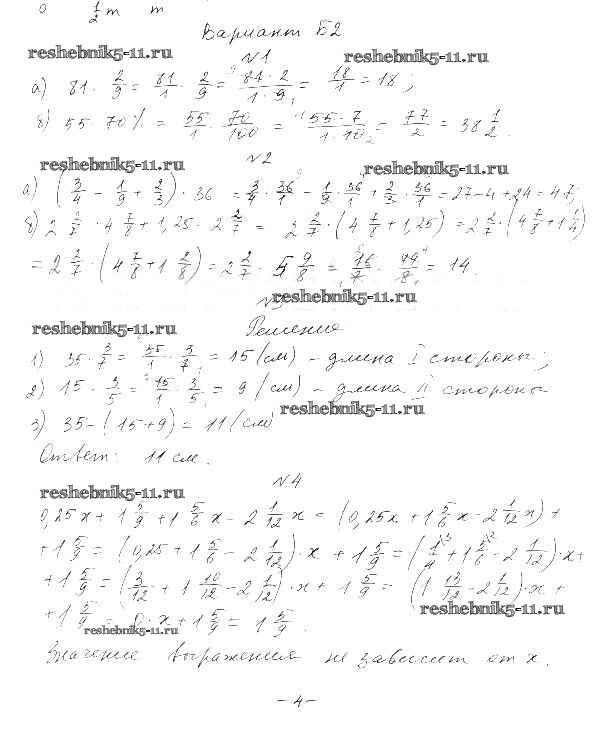 0 1/2 m m
Вариант Б2
reshebnik5-11.ru №1 reshebnik5-11.ru
а) 81 · 2/9 = 81/1 · 2/9 = 81 · 2 / 1 · 9 = 18/1 = 18;
б) 55 · 70% = 55/1 · 70/100 = 55 · 7 / 1 · 10 = 77/2 = 38 1/2.
reshebnik5-11.ru №2 reshebnik5-11.ru
а) (3/4 - 1/9 + 2/3) · 36 = 3/4 · 36/1 - 1/9 · 36/1 + 2/3 · 36/1 = 27 - 4 + 24 = 47;
б) 2 2/7 · 4 7/8 + 1,25 · 2 2/7 = 2 2/7 · (4 7/8 + 1,25) = 2 2/7 · (4 7/8 + 1 1/4)
= 2 2/7 · (4 7/8 + 1 2/8) = 2 2/7 · 5 9/8 = 16/7 · 49/8 = 14.
№3 reshebnik5-11.ru
reshebnik5-11.ru Решение
1) 35 · 3/7 = 35/1 · 3/7 = 15 (см) - длина I стороны;
2) 15 · 3/5 = 15/1 · 3/5 = 9 (см) - длина II стороны
reshebnik5-11.ru
3) 35 - (15 + 9) = 11 (см)
Ответ: 11 см.
reshebnik5-11.ru №4
0,25x + 1 5/9 + 1 5/6 x - 2 1/12 x = (0,25x + 1 5/6 x - 2 1/12 x) +
+ 1 5/9 = (0,25 + 1 5/6 - 2 1/12) · x + 1 5/9 = (1/4 + 1 5/6 - 2 1/12) · x +
+ 1 5/9 = (3/12 + 1 10/12 - 2 1/12) · x + 1 5/9 = (1 13/12 - 2 1/12) · x +
reshebnik5-11.ru
+ 1 5/9 = 0 · x + 1 5/9 = 1 5/9.
reshebnik5-11.ru
Значение выражения не зависит от x.
- 4 -